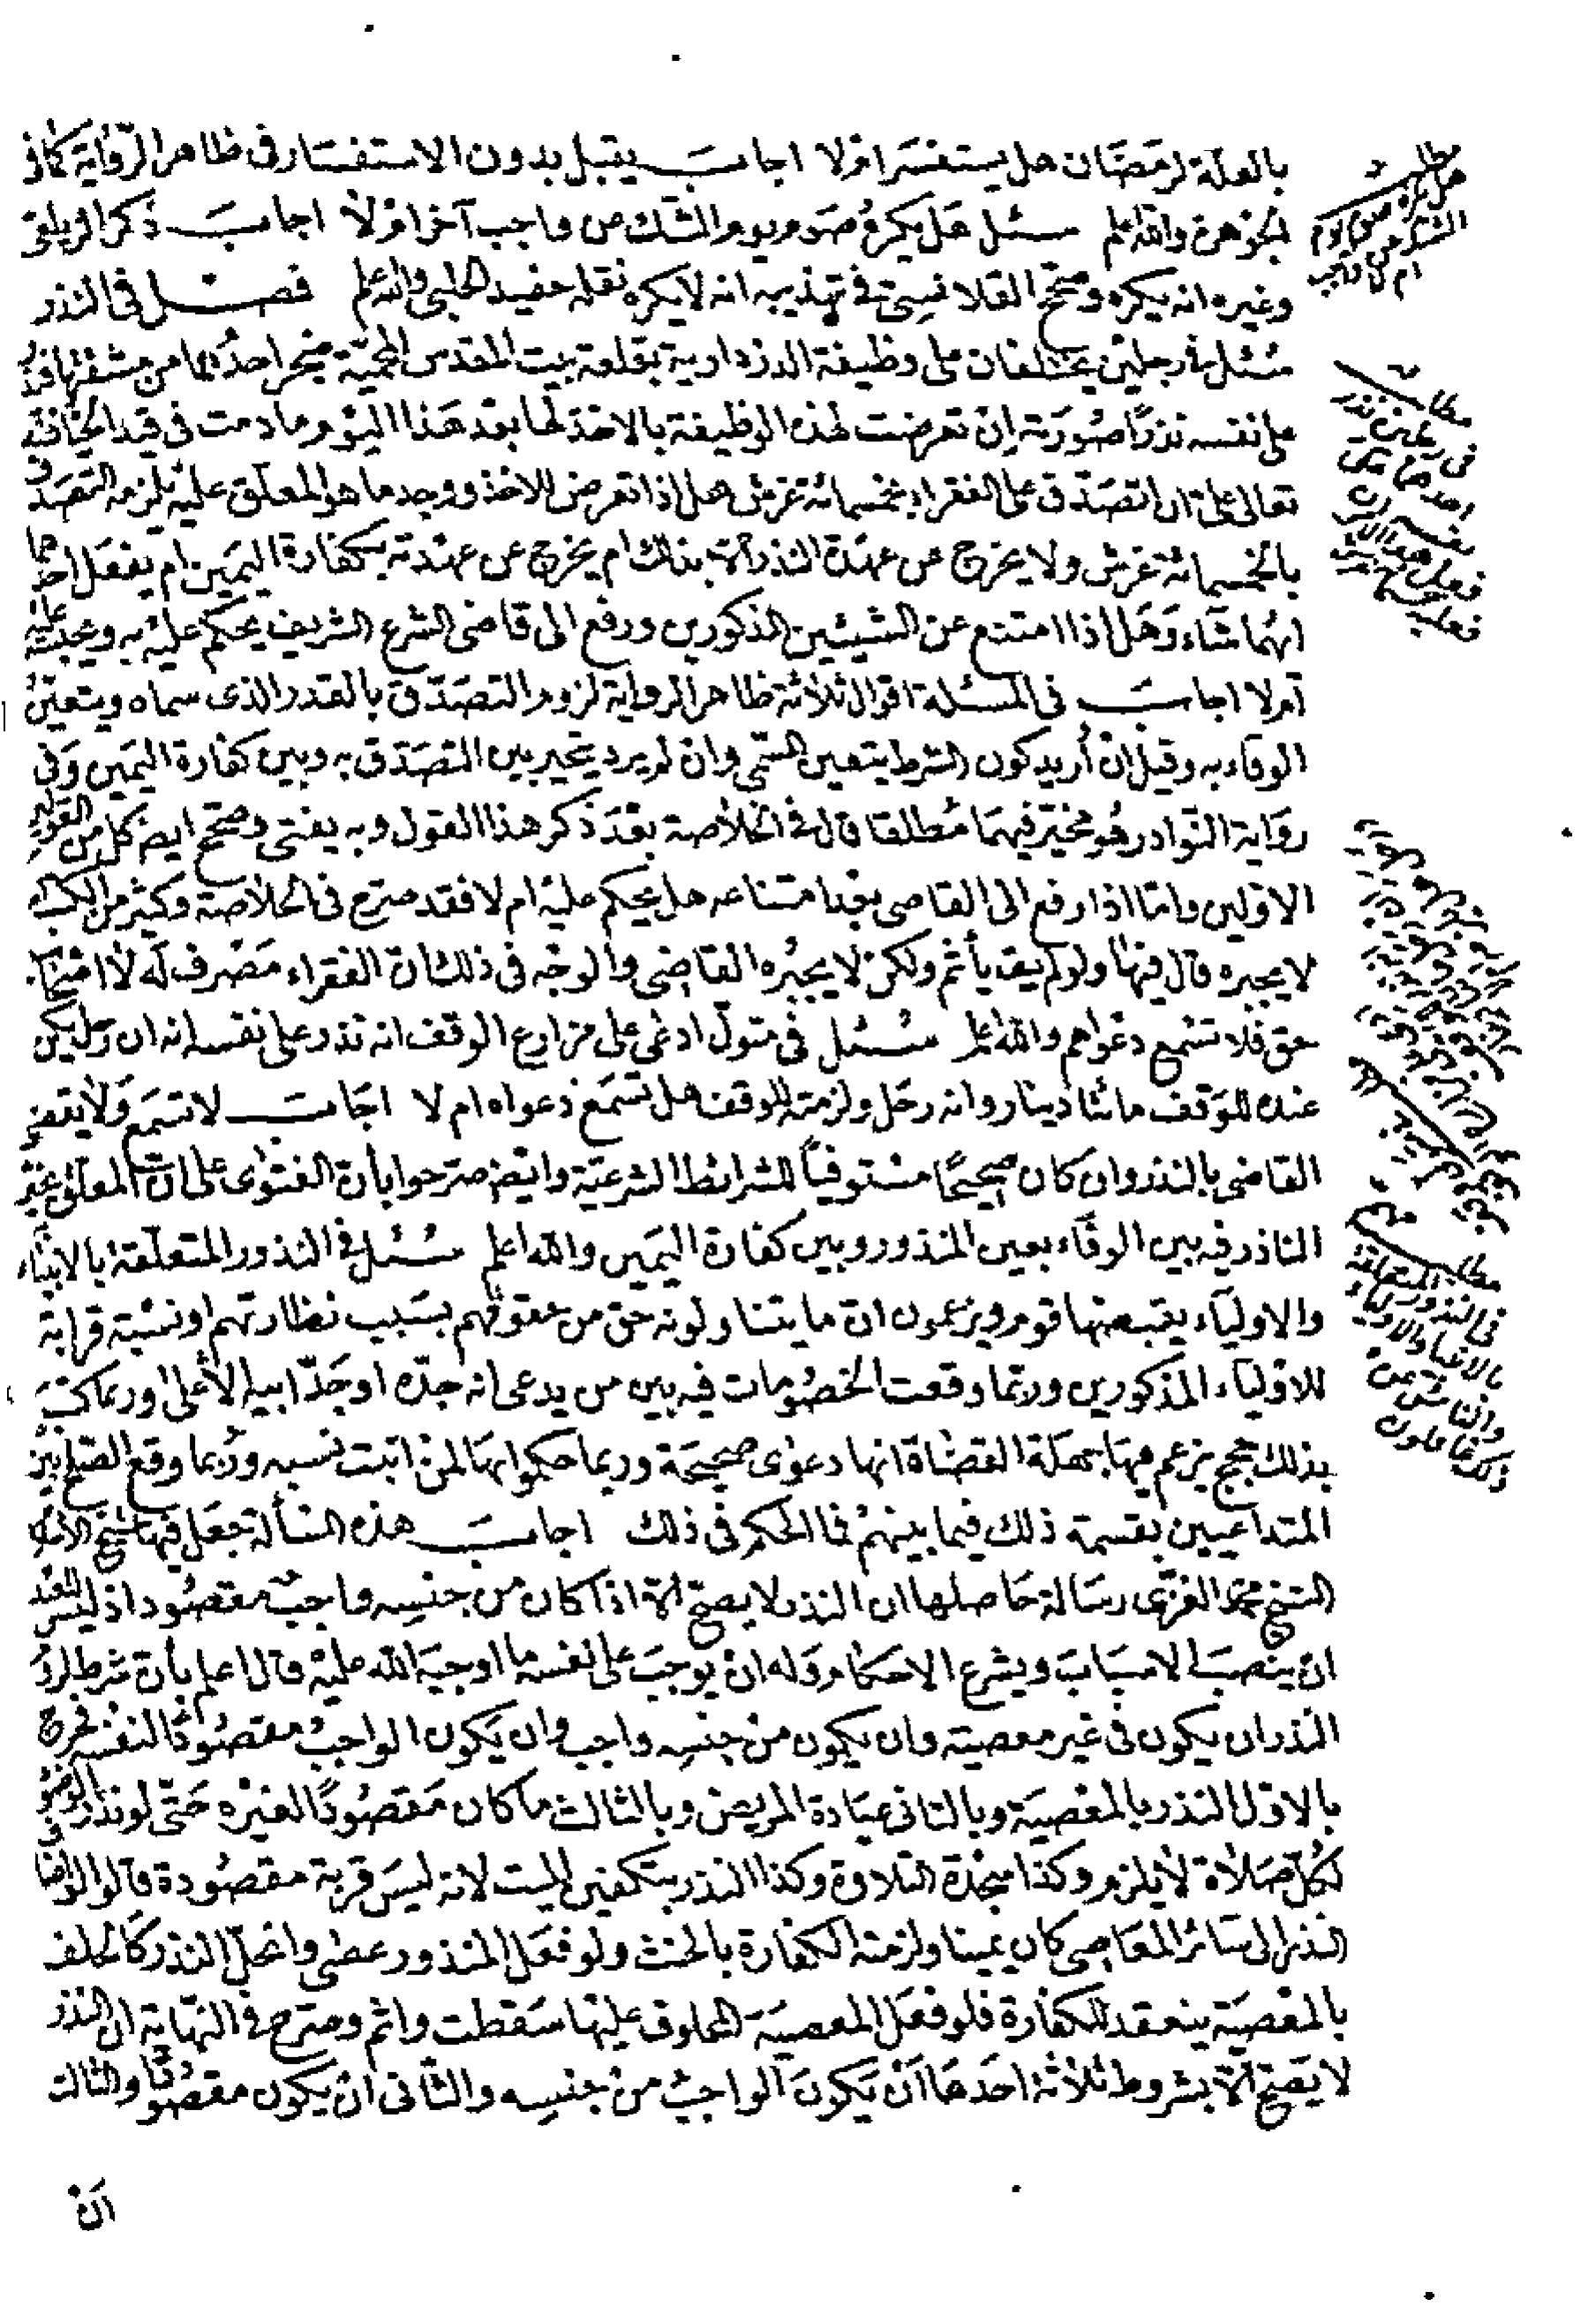 بالعلة لرمضان هل يستفسر ام لا اجاب يقبل بدون الاستفسار في ظاهر الرواية كما في
الجوهرة والله اعلم سئل هل يكره صوم يوم الشك من واجب آخر ام لا اجاب ذكر الزيلعي
وغيره انه يكره وصحح القلانسي في تهذيبه انه لا يكره نقله حفيد الحلبي والله اعلم فصل في النذر
سئل في رجلين يختلفان على وظيفة الدزدارية بقلعة بيت المقدس المحمية فخرج احدهما من مشقتها
على نفسه نذرا صورته ان تعرضت لهذه الوظيفة بالاخذ لها بعد هذا اليوم ما دمت في قيد الحياة فلله
تعالى علي ان اتصدق على الفقراء بخمسمائة غرش هل اذا تعرض للاخذ ووجد ما هو المعلق عليه يلزمه التصدق
بالخمسمائة غرش ولا يخرج عن عهدة النذر الا بذلك ام يخرج عن عهدته بكفارة اليمين ام يفعل احدهما
ايهما شاء وهل اذا امتنع عن الشيئين المذكورين ورفع الى قاضي الشرع الشريف يحكم عليه به ويجبره عليه
ام لا اجاب في المسئلة اقوال ثلاثة ظاهر الرواية لزوم التصدق بالقدر الذي سماه ويتعين
الوفاء به وقيل ان أريد كون الشرط يتعين المسمى وان لم يرد يخير بين التصدق به وبين كفارة اليمين وفي
رواية النوادر هو مخير فيهما مطلقا قال في الخلاصة بعد ذكر هذا القول وبه يفتى وصحح ايضا كل من القولين
الاولين واما اذا رفع الى القاضي بعد امتناعه هل يحكم عليه ام لا فقد صرح في الخلاصة وكثير من الكتب
لا يجبره قال فيها ولو لم يف يأثم ولكن لا يجبره القاضي والوجه في ذلك ان الفقراء مصرف له لا اصحاب
حق فلا تسمع دعواهم والله اعلم سئل في متول ادعى على مزارع الوقف انه نذر على نفسه انه ان رحل يكن
عنده للوقف مائتا دينار وانه رحل ولزمته للوقف هل تسمع دعواه ام لا اجاب لا تسمع ولا يقضي
القاضي بالنذر وان كان صحيحا مستوفيا للشرائط الشرعية وايضا صرحوا بأن الفتوى على ان المعلق يخير
الناذر فيه بين الوفاء بعين المنذور وبين كفارة اليمين والله اعلم سئل في النذور المتعلقة بالانبياء
والاولياء يقبضها قوم ويزعمون ان ما يتناولونه حق من حقوقهم بسبب نظارتهم او نسبة قرابة
للاولياء المذكورين وربما وقعت الخصومات فيه بين من يدعي انه جده او جد ابيه الأعلى وربما كتب
بذلك حجج يزعم فيها جهلة القضاة انها دعوى صحيحة وربما حكموا بها لمن اثبت نسبه وربما وقع الصلح بين
المتداعيين بقسمة ذلك فيما بينهم فما الحكم في ذلك اجاب هذه المسألة جعل فيها شيخ الاسلام
الشيخ محمد الغزي رسالة حاصلها ان النذر لا يصح الا اذا كان من جنسه واجب مقصود اذ ليس للعبد
ان ينصب الاسباب ويشرع الاحكام وله ان يوجب على نفسه ما اوجبه الله عليه قال اعلم بأن شرط لزوم
النذر ان يكون في غير معصية وان يكون من جنسه واجب وان يكون الواجب مقصودا لنفسه فخرج
بالاول النذر بالمعصية وبالثاني عيادة المريض وبالثالث ما كان مقصودا لغيره حتى لو نذر الوضوء
لكل صلاة لا يلزم وكذا سجدة التلاوة وكذا النذر بتكفين الميت لانه ليس قربة مقصودة قالوا لو اضاف
النذر الى سائر المعاصي كان يمينا ولزمته الكفارة بالحنث ولو فعل المنذور عصى وانحل النذر كالحلف
بالمعصية ينعقد للكفارة فلو فعل المعصية المحلوف عليها سقطت واثم وصرح في النهاية ان النذر
لا يصح الا بشروط ثلاثة احدها أن يكون الواجب من جنسه والثاني ان يكون مقصودا والثالث
ان
مطلب
هل يكره صوم يوم
الشك عن واجب
ام لا
مطلب
في يمين نذر
مطلب
في النذور المتعلقة
بالانبياء والاولياء